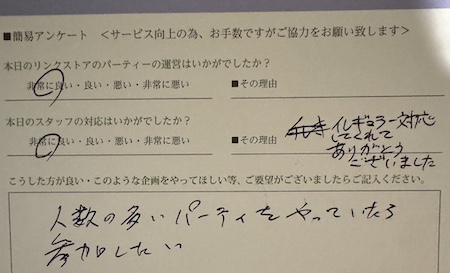 ■簡易アンケート ＜サービス向上の為、お手数ですがご協力をお願い致します＞
本日のリンクストアのパーティーの運営はいかがでしたか?
非常に良い・良い・悪い・非常に悪い ■その理由
本日のスタッフの対応はいかがでしたか?
非常に良い・良い・悪い・非常に悪い ■その理由
イレギュラー対応
してくれて
ありがとう
ございました
こうした方が良い・このような企画をやってほしい等、ご要望がございましたらご記入ください。
人数の多いパーティをやっていたら
参加したい